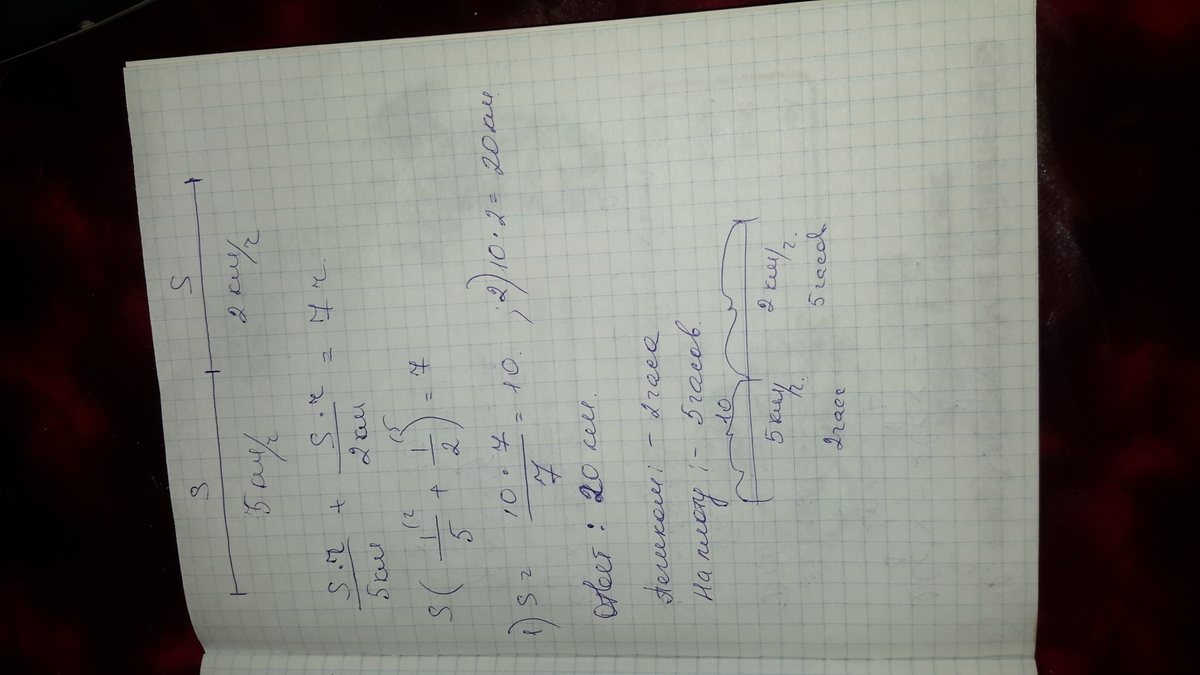 S S
5 км/ч 2 км/ч
S·ч/5 км + S·ч/2 км = 7 ч.
S (1/5 ⁽² + 1/2 ⁽⁵) = 7
1) S = 10·7/7 = 10. ; 2) 10·2 = 20 км.
Ответ: 20 км.
Пешком: – 2 часа
На плоту: – 5 часов.
10
5 км/ч. 2 км/ч.
2 час 5 часов